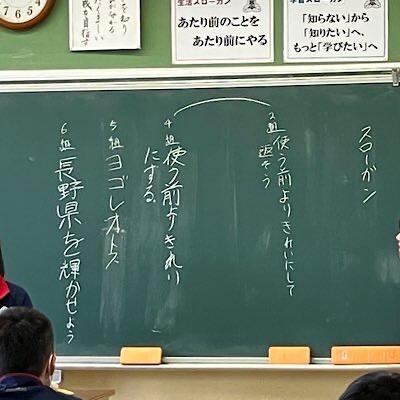 生活スローガン
あたり前のことを
あたり前にやる
学習スローガン
「知らない」から
「知りたい」へ、
もっと「学びたい」へ
スローガン
2組 使う前よりきれいにして
返そう
4組 使う前よりきれい
にする
5組 ヨゴレオトス
6組 長野県を輝かせよう